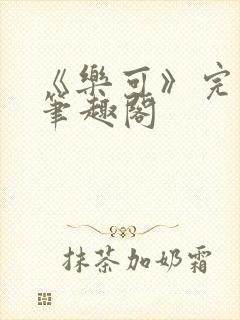 《樂可》完
筆趣閣
抹茶加奶霜